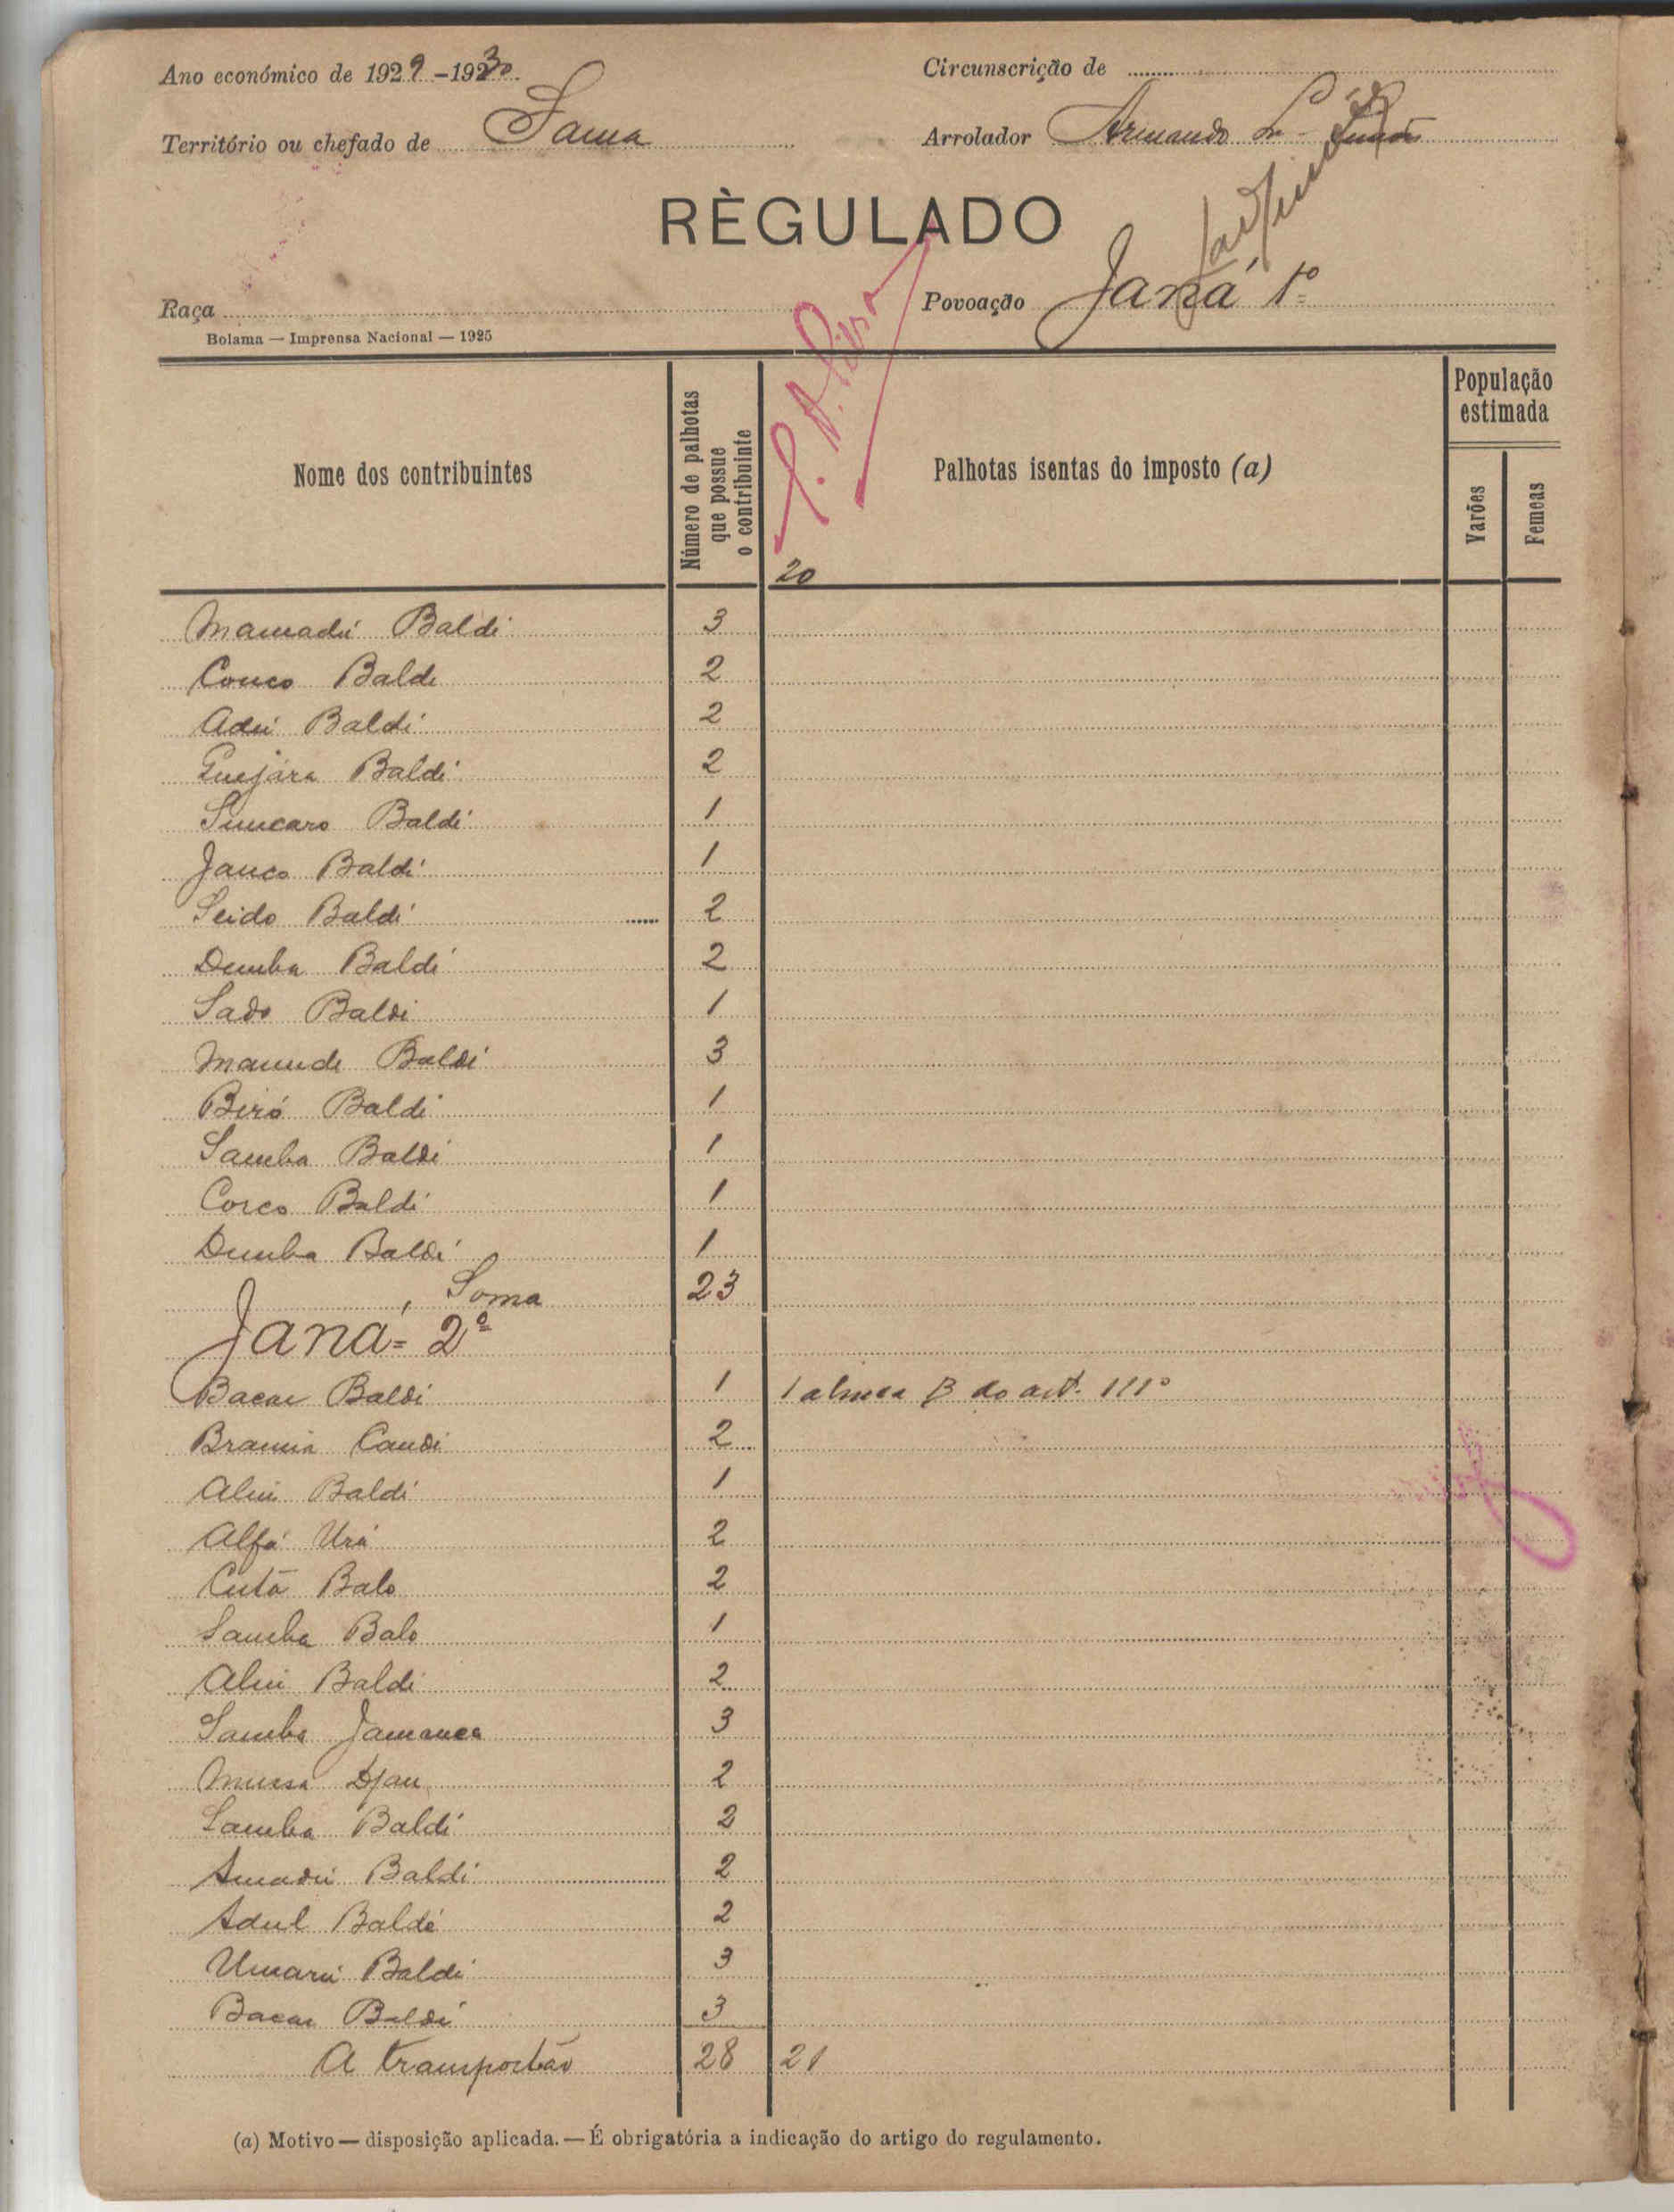 Ano económico de 1929-1930
Circunscrição de
Território ou chefado de Sama
Arrolador Armando
RÈGULADO
Raça
Povoação Janá 1º
Bolama — Imprensa Nacional — 1925
Nome dos contribuintes
Número de palhotas que possue o contribuinte
Palhotas isentas do imposto (a)
População estimada
Varões
Femeas
20
Mamadú Baldé 3
Couco Balde 2
Adú Baldé 2
Guejára Baldé 2
Baldé 1
Jauco Baldé 1
Seido Baldé 2
Demba Baldé 2
Sado Baldé 1
Baldé 3
Biró Baldé 1
Samba Baldé 1
Corco Baldé 1
Demba Baldé 1
Soma 23
Janá = 2º
Bacar Baldé 1 1 alinea B do art. 111º
Bramia Candé 2
Baldé 1
Alfá Urá 2
Cutã Balo 2
Samba Balo 1
Baldé 2
Samba Jamanca 3
Mussa Djau 2
Samba Baldé 2
Amadú Baldé 2
Adul Baldé 2
Umarú Baldé 3
Bacar Baldé 3
A 28 21
(a) Motivo — disposição aplicada. — É obrigatória a indicação do artigo do regulamento.